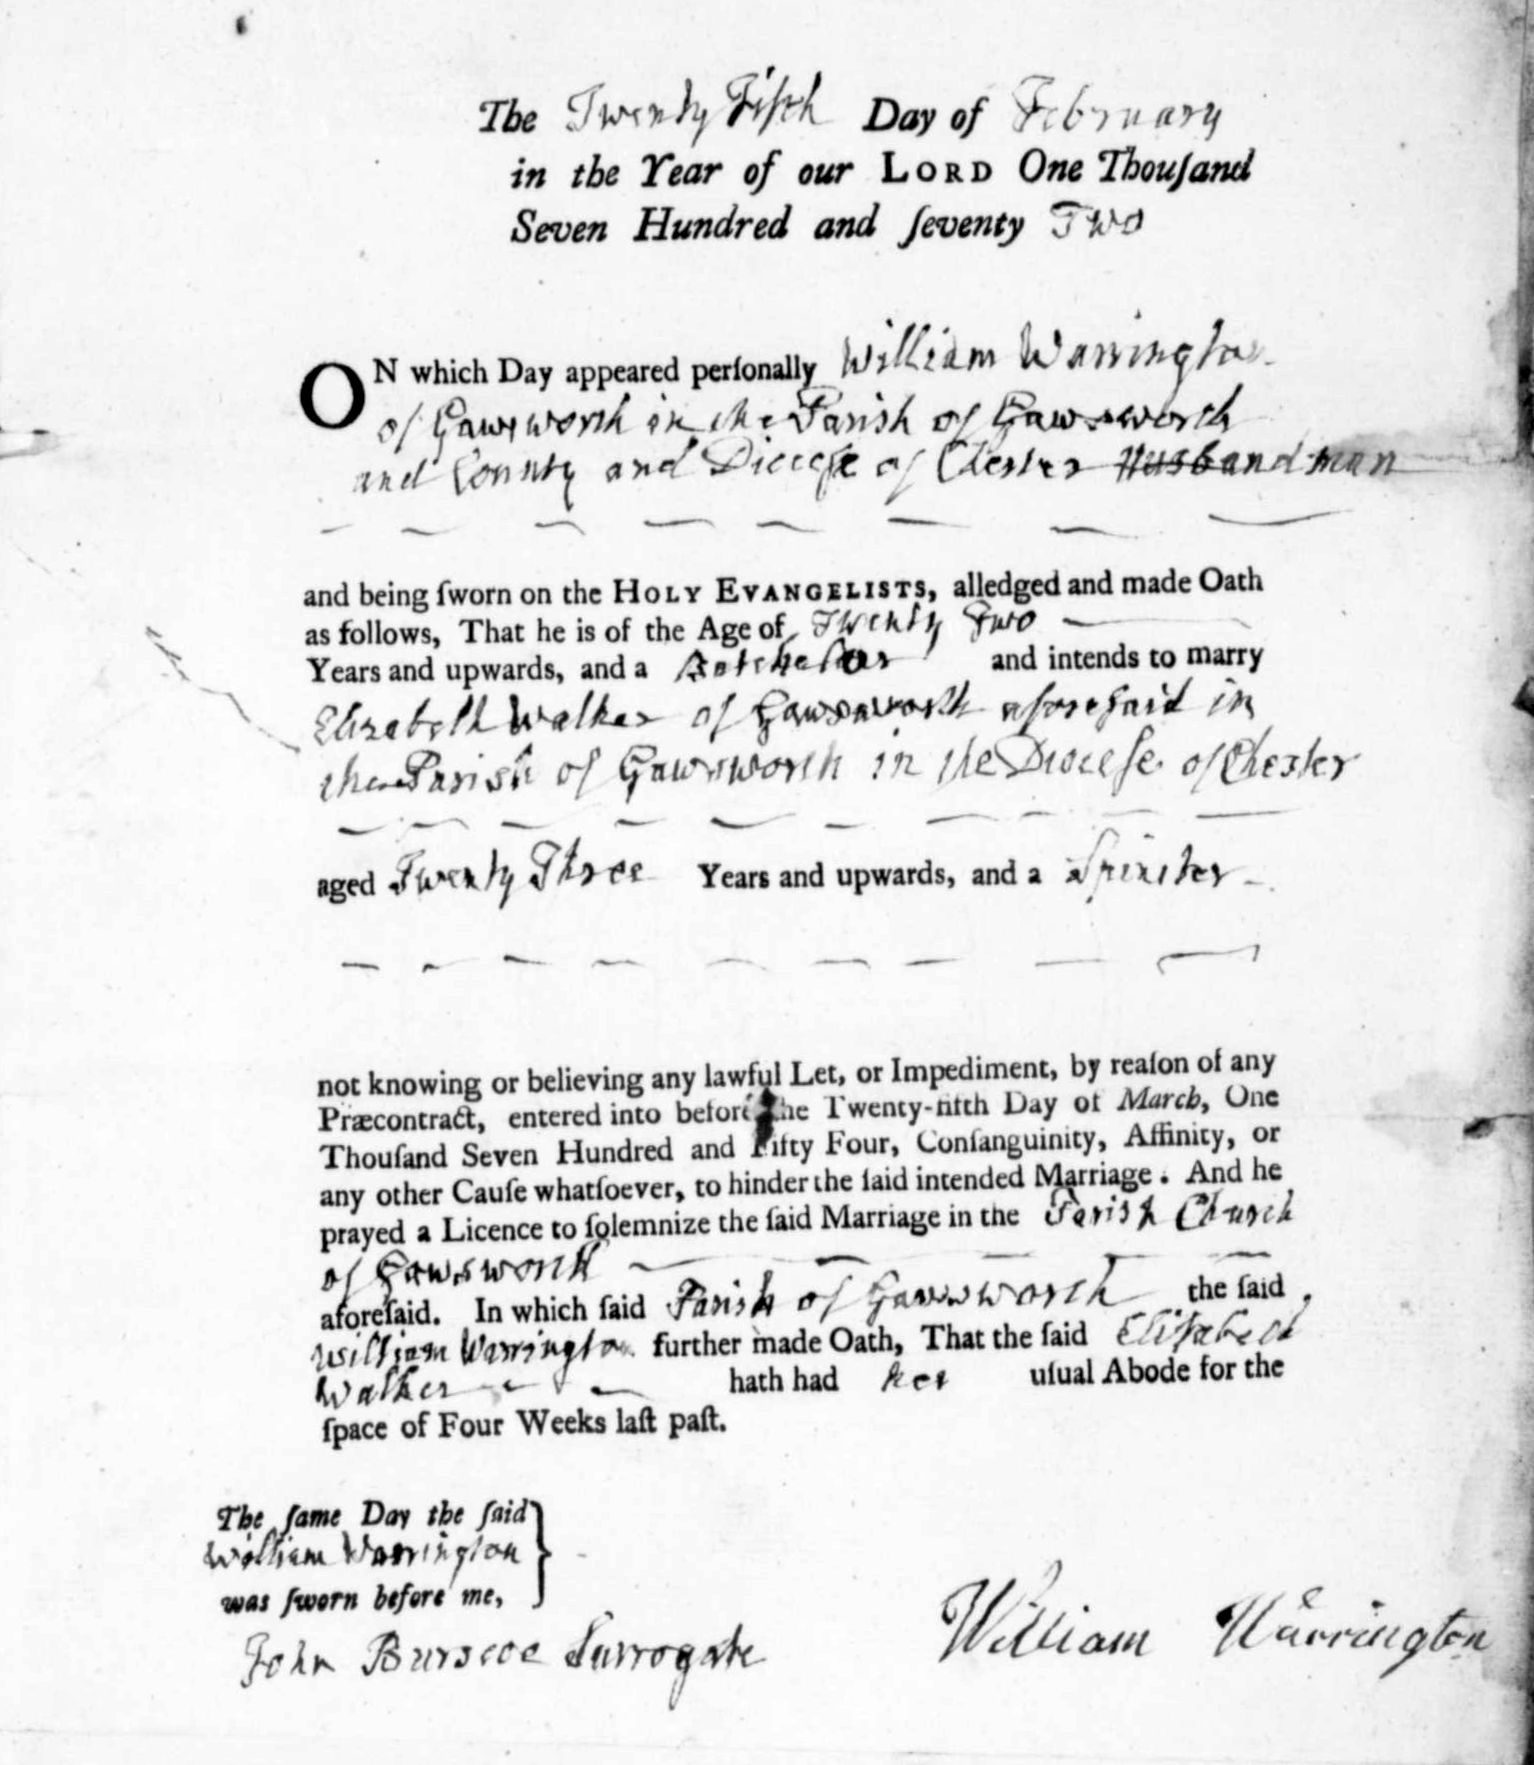 The Twenty Fifth Day of February
in the Year of our LORD One Thouſand
Seven Hundred and ſeventy Two
ON which Day appeared perſonally William Warrington
of Gawsworth in the Parish of Gawsworth
and County and Diocese of Chester Husbandman
and being ſworn on the HOLY EVANGELISTS, alledged and made Oath
as follows, That he is of the Age of Twenty Two
Years and upwards, and a Batchelor and intends to marry
Elizabeth Walker of Gawsworth aforesaid in
the Parish of Gawsworth in the Diocese of Chester
aged Twenty Three Years and upwards, and a Spinster
not knowing or believing any lawful Let, or Impediment, by reaſon of any
Præcontract, entered into before the Twenty-fifth Day of March, One
Thouſand Seven Hundred and Fifty Four, Conſanguinity, Affinity, or
any other Cauſe whatſoever, to hinder the ſaid intended Marriage. And he
prayed a Licence to ſolemnize the ſaid Marriage in the Parish Church
of Gawsworth
aforeſaid. In which ſaid Parish of Gawsworth the ſaid
William Warrington further made Oath, That the ſaid Elisabeth
Walker hath had her uſual Abode for the
ſpace of Four Weeks laſt paſt.
The ſame Day the ſaid
William Warrington
was ſworn before me,
John Burscoe Surrogate
William Warrington